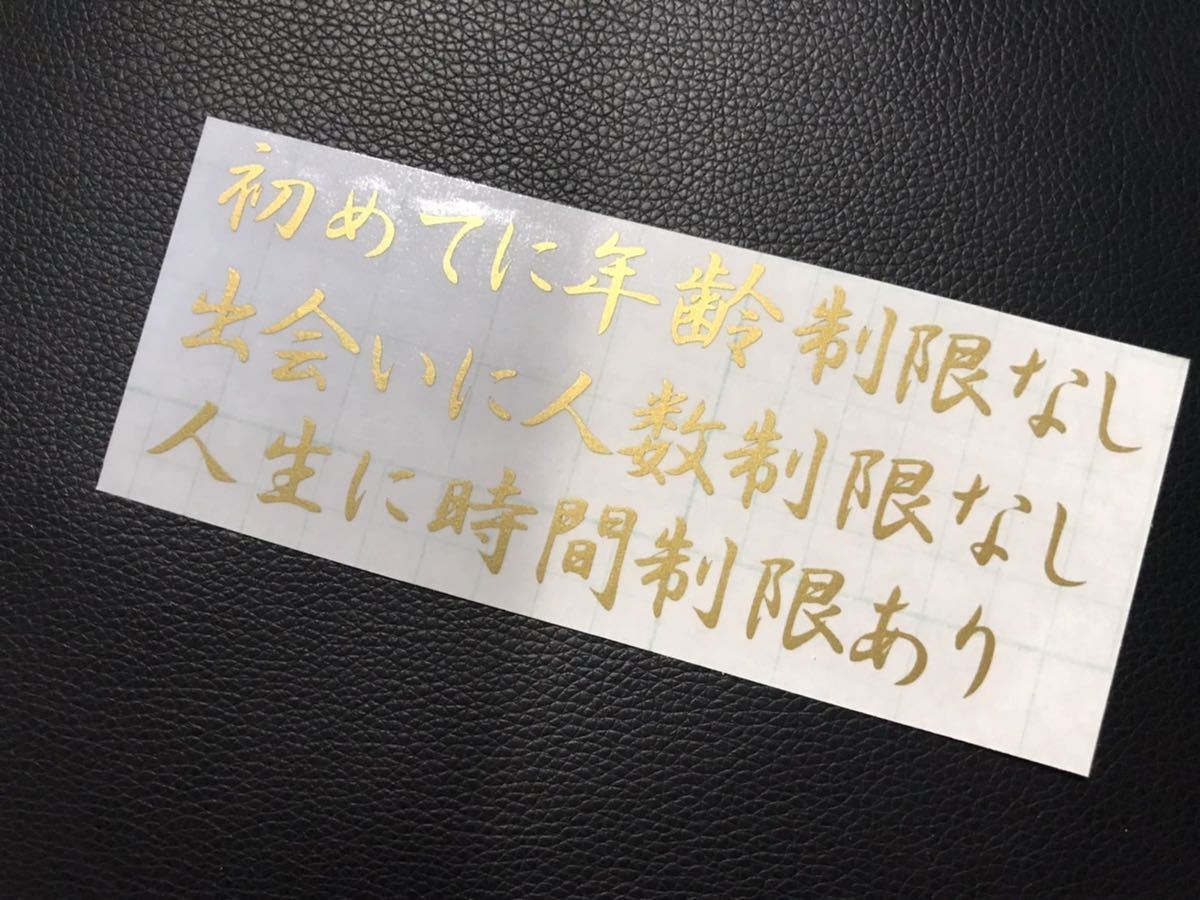 初めてに年齢制限なし
出会いに人数制限なし
人生に時間制限あり